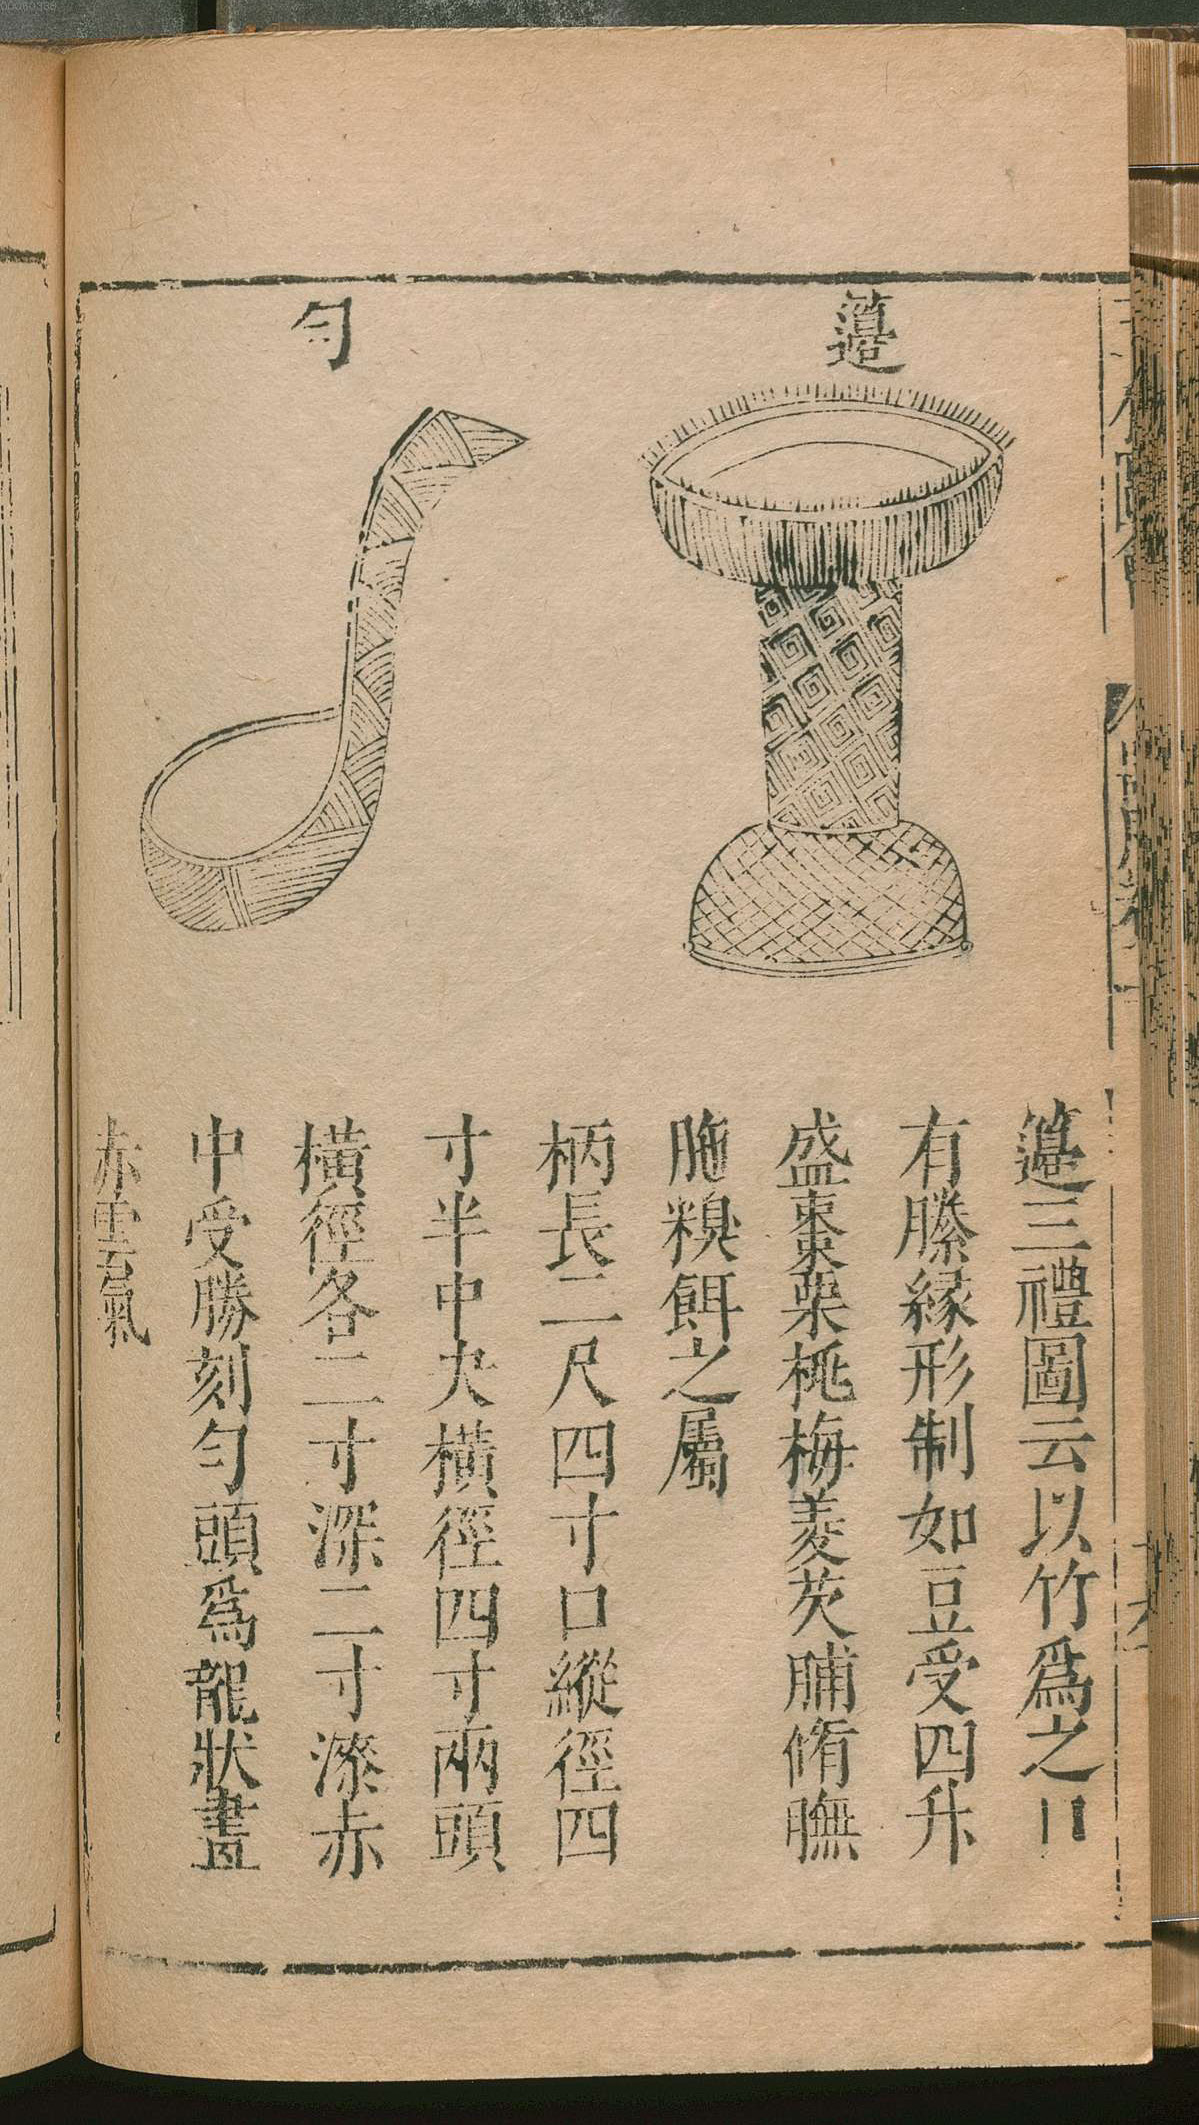 籩
勺
籩三禮圖云以竹爲之口
有縢緣形制如豆受四升
盛棗栗桃梅菱芡脯脩膴
胣糗餌之屬
柄長二尺四寸口縱徑四
寸半中央橫徑四寸兩頭
橫徑各二寸深二寸漆赤
中受勝刻勺頭爲龍狀畫
赤雲氣
00060338